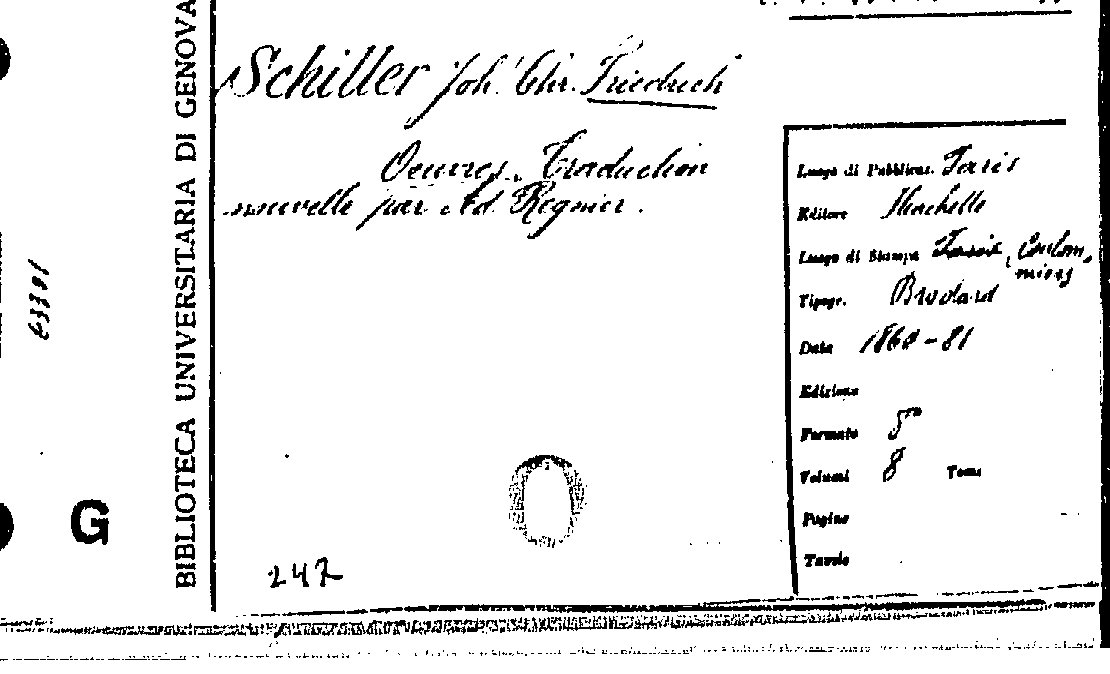 BIBLIOTECA UNIVERSITARIA DI GENOVA
Schiller Joh. Chr. Friedrich
Oeuvres. Traduction
nouvelle par Ad. Regnier.
Luogo di Pubblicaz. Paris
Editore Hachette
Luogo di Stampa Paris, Coulom,
miers
Tipogr. Brodard
Data 1860-81
Edizione
Formato
Volumi 8 Tomi
Pagine
Tavole
G
247